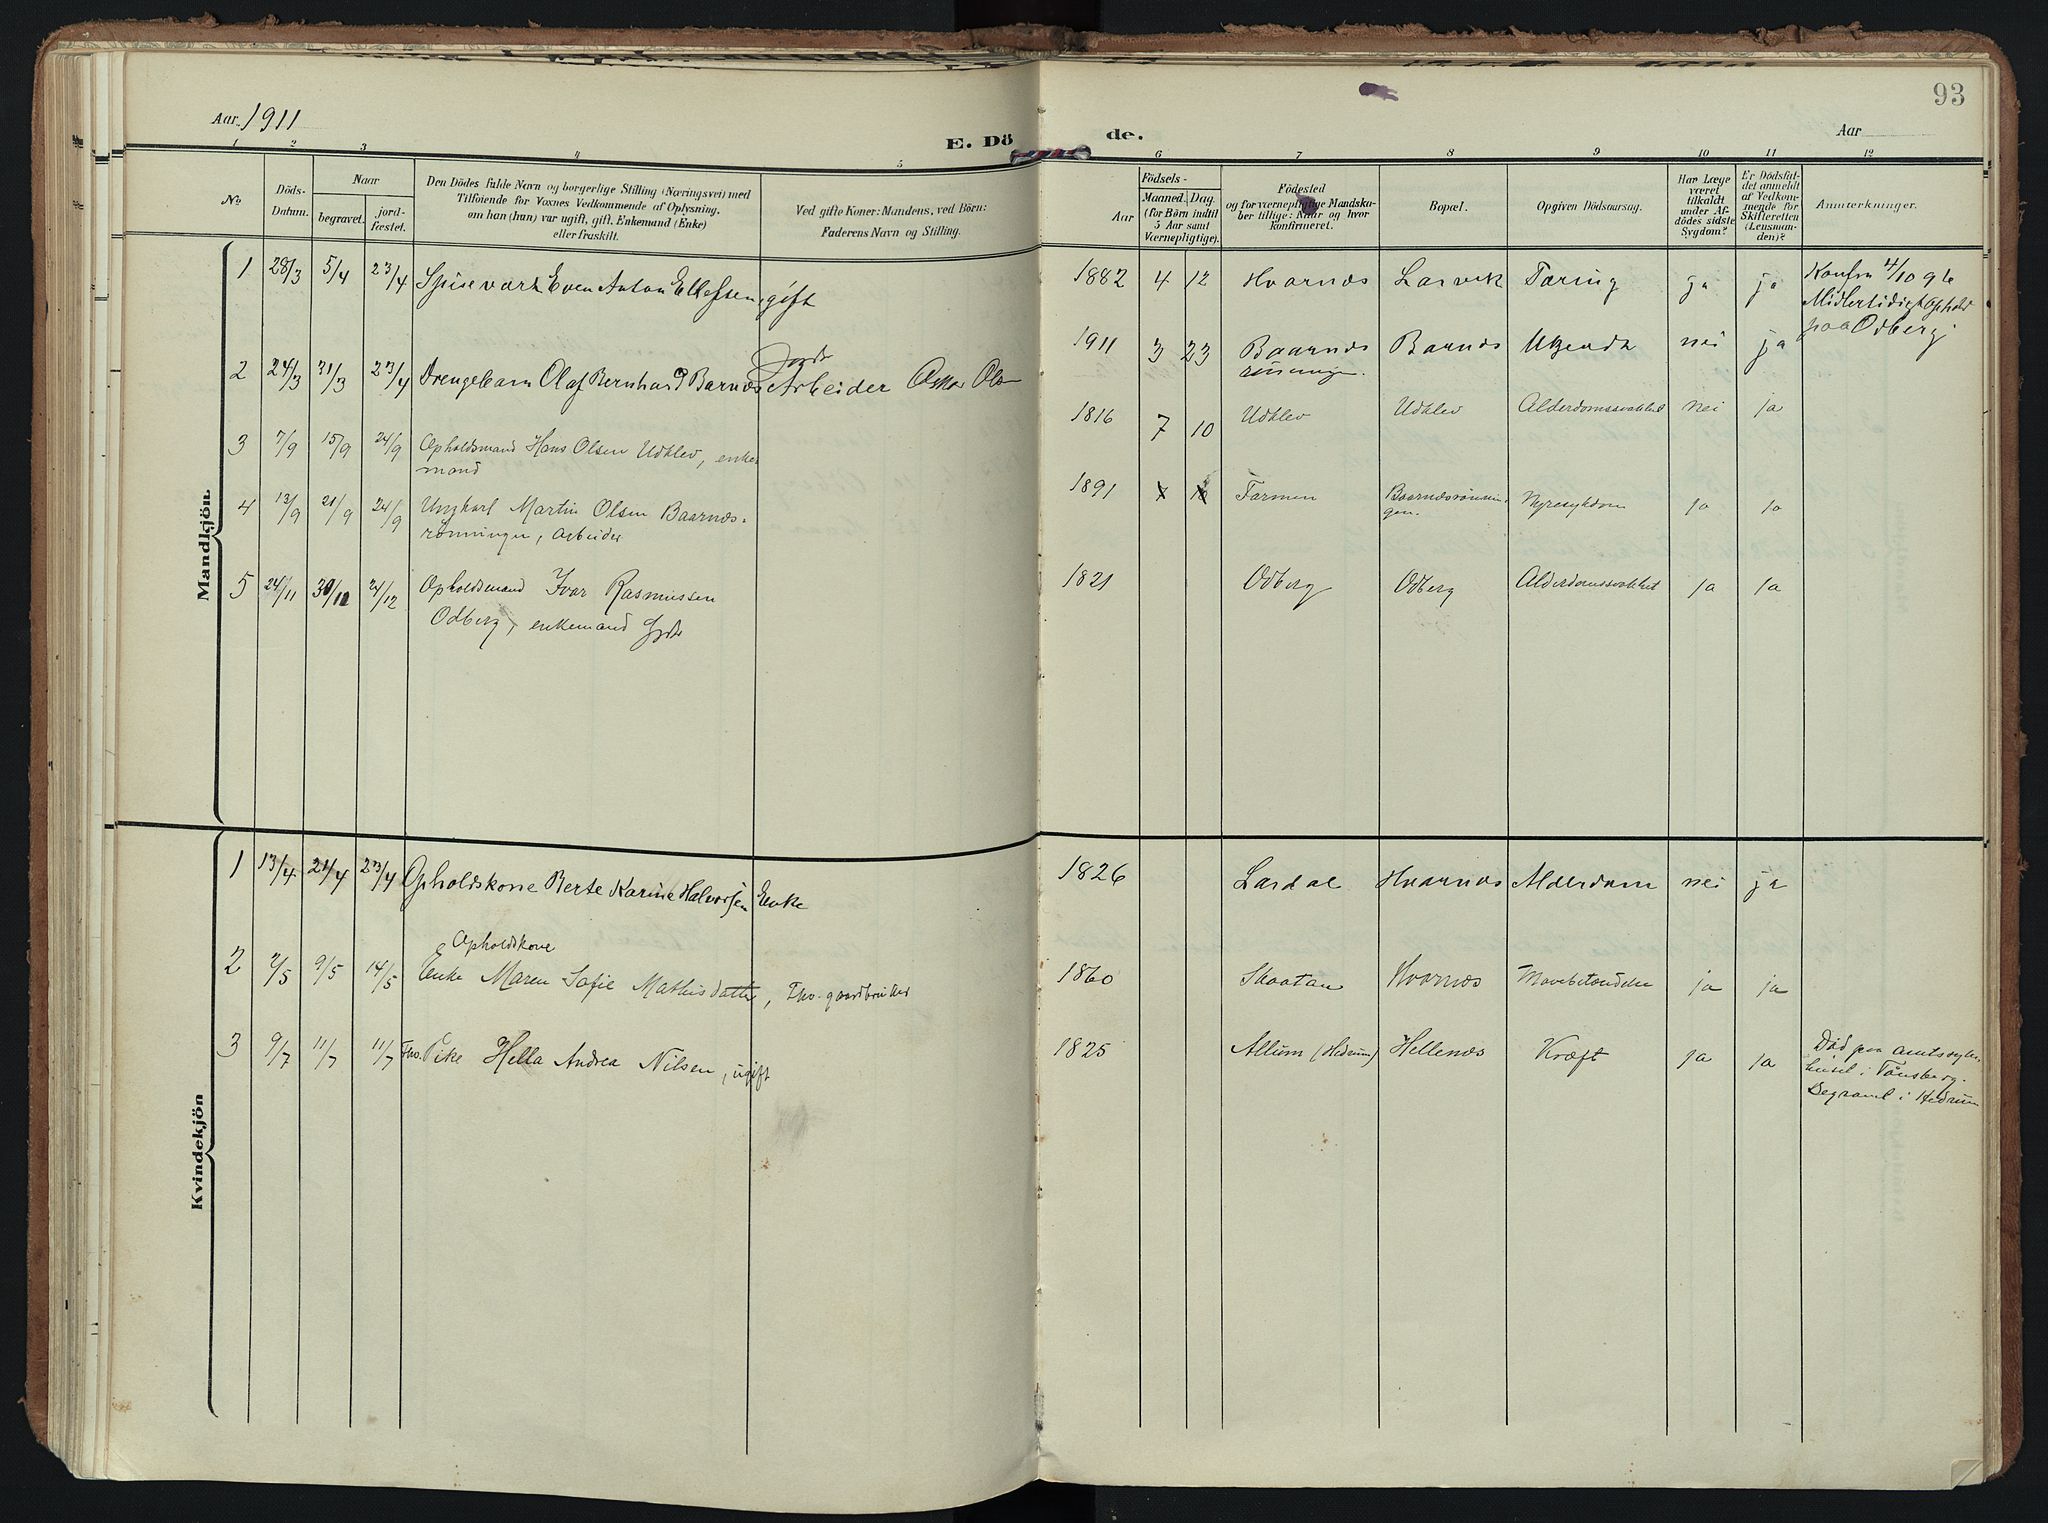 93
Aar 1911
E. Dö de.
Aar
1 2 3 4 5 6 7 8 9 10 11 12
No
Döds-Datum.
Naar
begravet.
jord-fæstet.
Den Dödes fulde Navn og borgerlige Stilling (Næringsvei) med
Tilföiende for Voxnes Vedkommende af Oplysning,
om han (hun) var ugift, gift, Enkemand (Enke)
eller fraskilt.
Ved gifte Koner: Mandens, ved Börn:
Faderens Navn og Stilling.
Aar
Födsels-
Maaned. Dag.
(for Börn indtil
5 Aar samt
Værnepligtige).
Födested
og for værnepligtige Mandska-
ber tillige: Naar og hvor
konfirmeret.
Bopæl.
Opgiven Dödsaarsag.
Har Læge
været
tilkaldt
under Af-
dödes sidste
Sygdom?
Er Dödsfal-
det anmeldt
af Vedkom-
mende for
Skifteretten
(Lensman-
den)?
Anmærkninger.
Mandkjön.
1 28/3 5/4 23/4 Spisevært Even Anton Ellefsen, gift 1882 4 12 Hvarnes Larvik Tæring ja ja Konfm 4/10 96
Midlertidigt Ophold
paa Odberg.
2 24/3 31/3 23/4 Drengebarn Olaf Bernhard Barnæs Arbeider Oskar Ols 1911 3 23 Baarnes Barnes Ukjendt nei ja
rönningen.
3 7/9 15/9 24/9 Opholdsmand Hans Olsen Udklev, enke- 1816 7 10 Udklev Udklev Alderdomssvakhet nei ja
mand
4 13/9 21/9 24/9 Ungkarl Martin Olsen Baarnæs- 1891 Farmen Baarnæsrönnin- Nyresykdom ja ja
rönningen, arbeider gen.
5 24/11 30/11 24/12 Opholdsmand Ivar Rasmussen 1821 Odberg Odberg Alderdomssvakhet ja ja
Odberg, enkemand
Kvindekjön
1 13/4 21/4 23/4 Opholdskone Berte Karine Halvorsen Enke 1826 Lardal Hvarnes Alderdom nei ja
Opholdskone
2 2/5 9/5 14/5 Enke Maren Sofie Mathisdatter, Fhv. gaardbruker 1860 Skaatan Hvarnes Mavebetændelse ja ja
3 9/7 11/7 11/7 Fhv. Pike Hella Andrea Nilsen, ugift 1825 Allum (Hedrum) Hellenæs Kræft ja ja Död paa amtssyke-
huset i Tønsberg.
Begravet i Hedrum